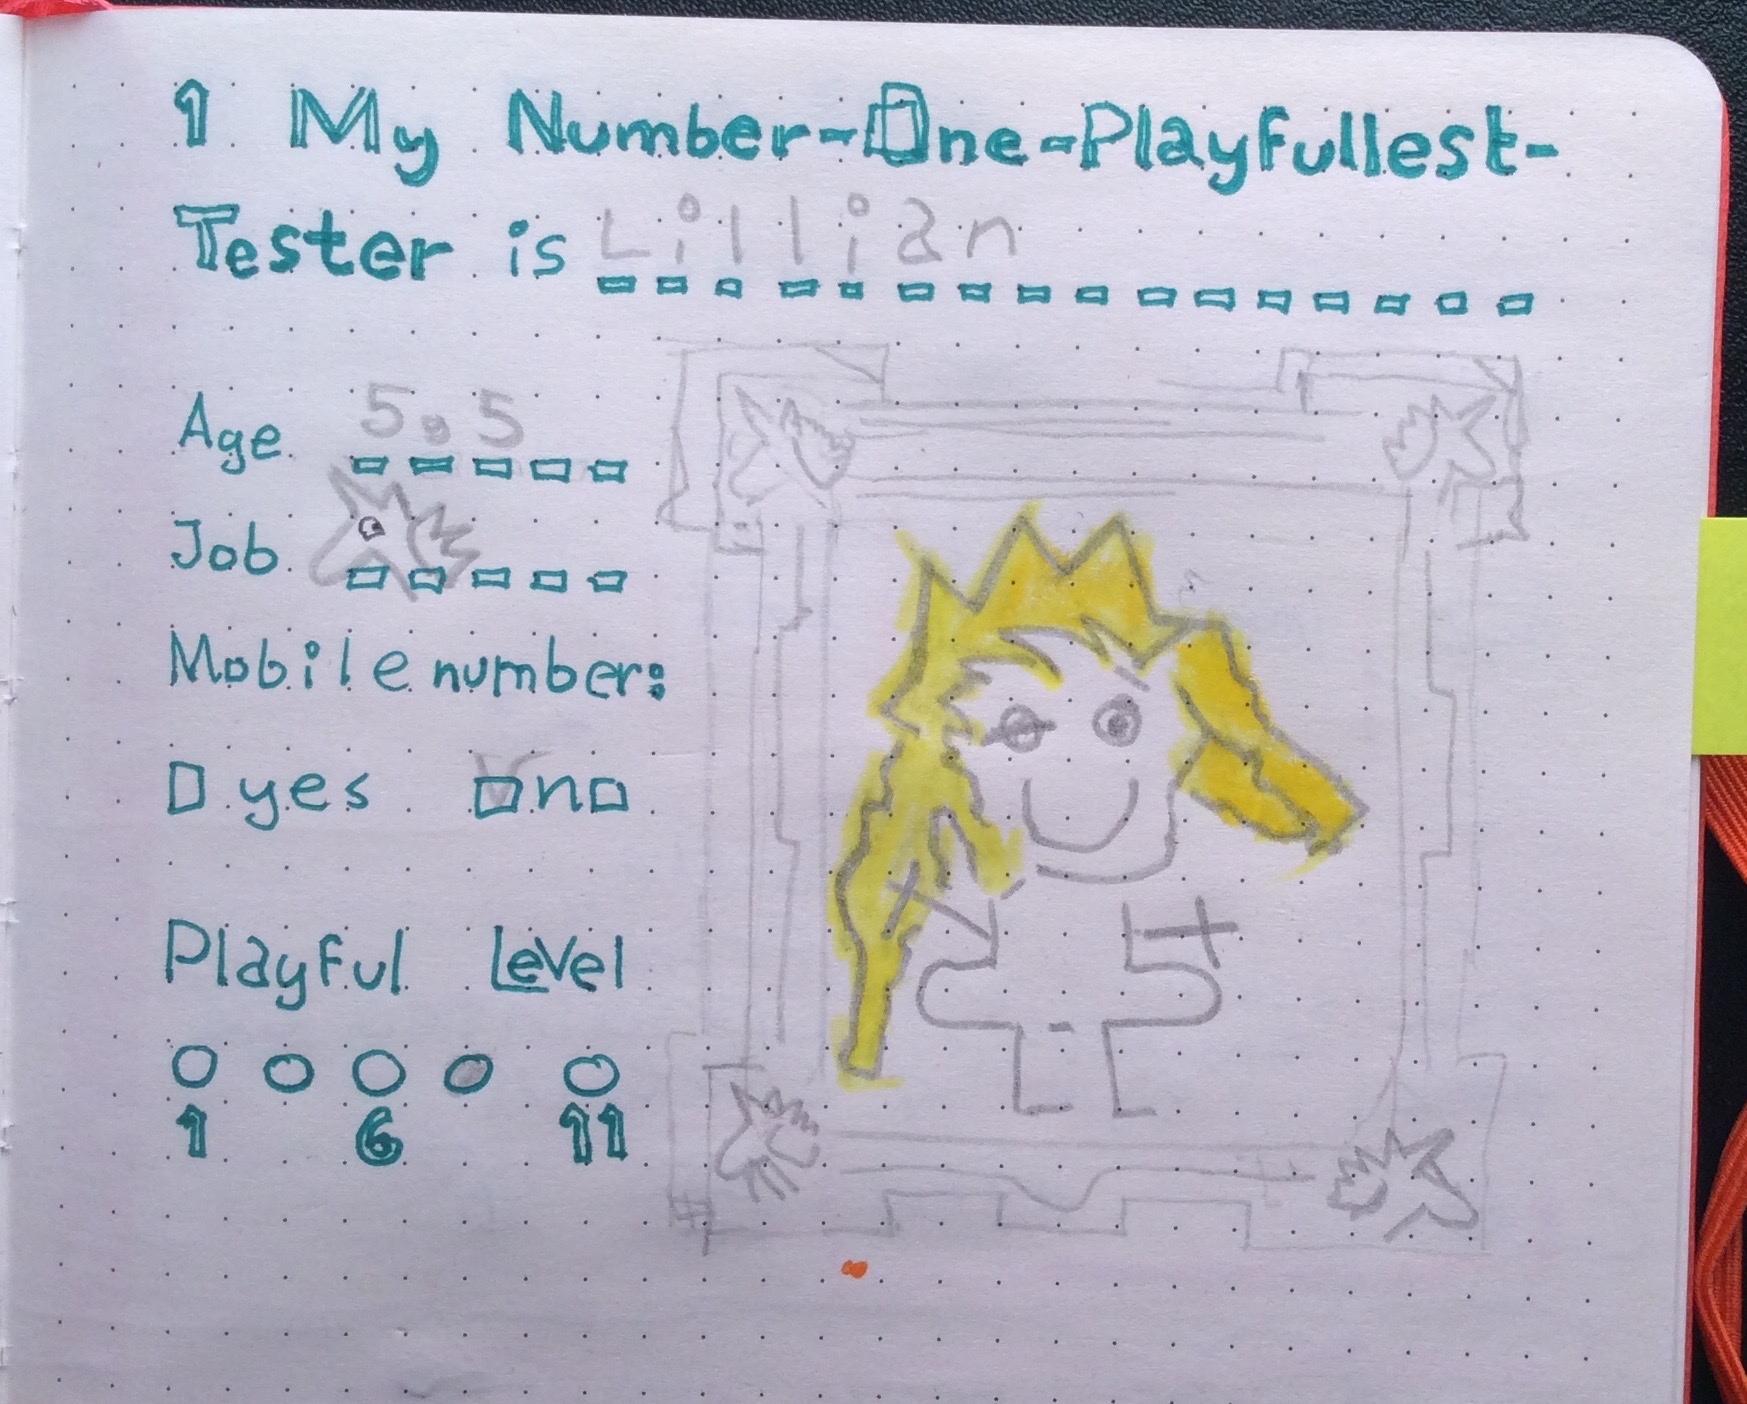 1 My Number-One-Playfullest-
Tester is Lillian
Age 5.5
Job
Mobile number:
yes no
Playful Level
1 6 11